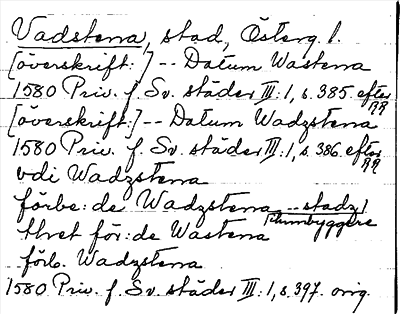 Vadstena, stad, Österg. l.
[överskrift:] -- Datum Wastena
1580 Priv. f. Sv. städer III:1, s. 385. efter RR
[överskrift:] -- Datum Wadzstena
1580 Priv. f. Sv. städer III:1, s. 386. efter RR
vdi Wadzstena
förbe:de Wadzstena -- stadz / Jnnbyggere
thet för:de Wastena
förb. Wadzstena
1580 Priv. f. Sv. städer III:1, s. 397. orig.